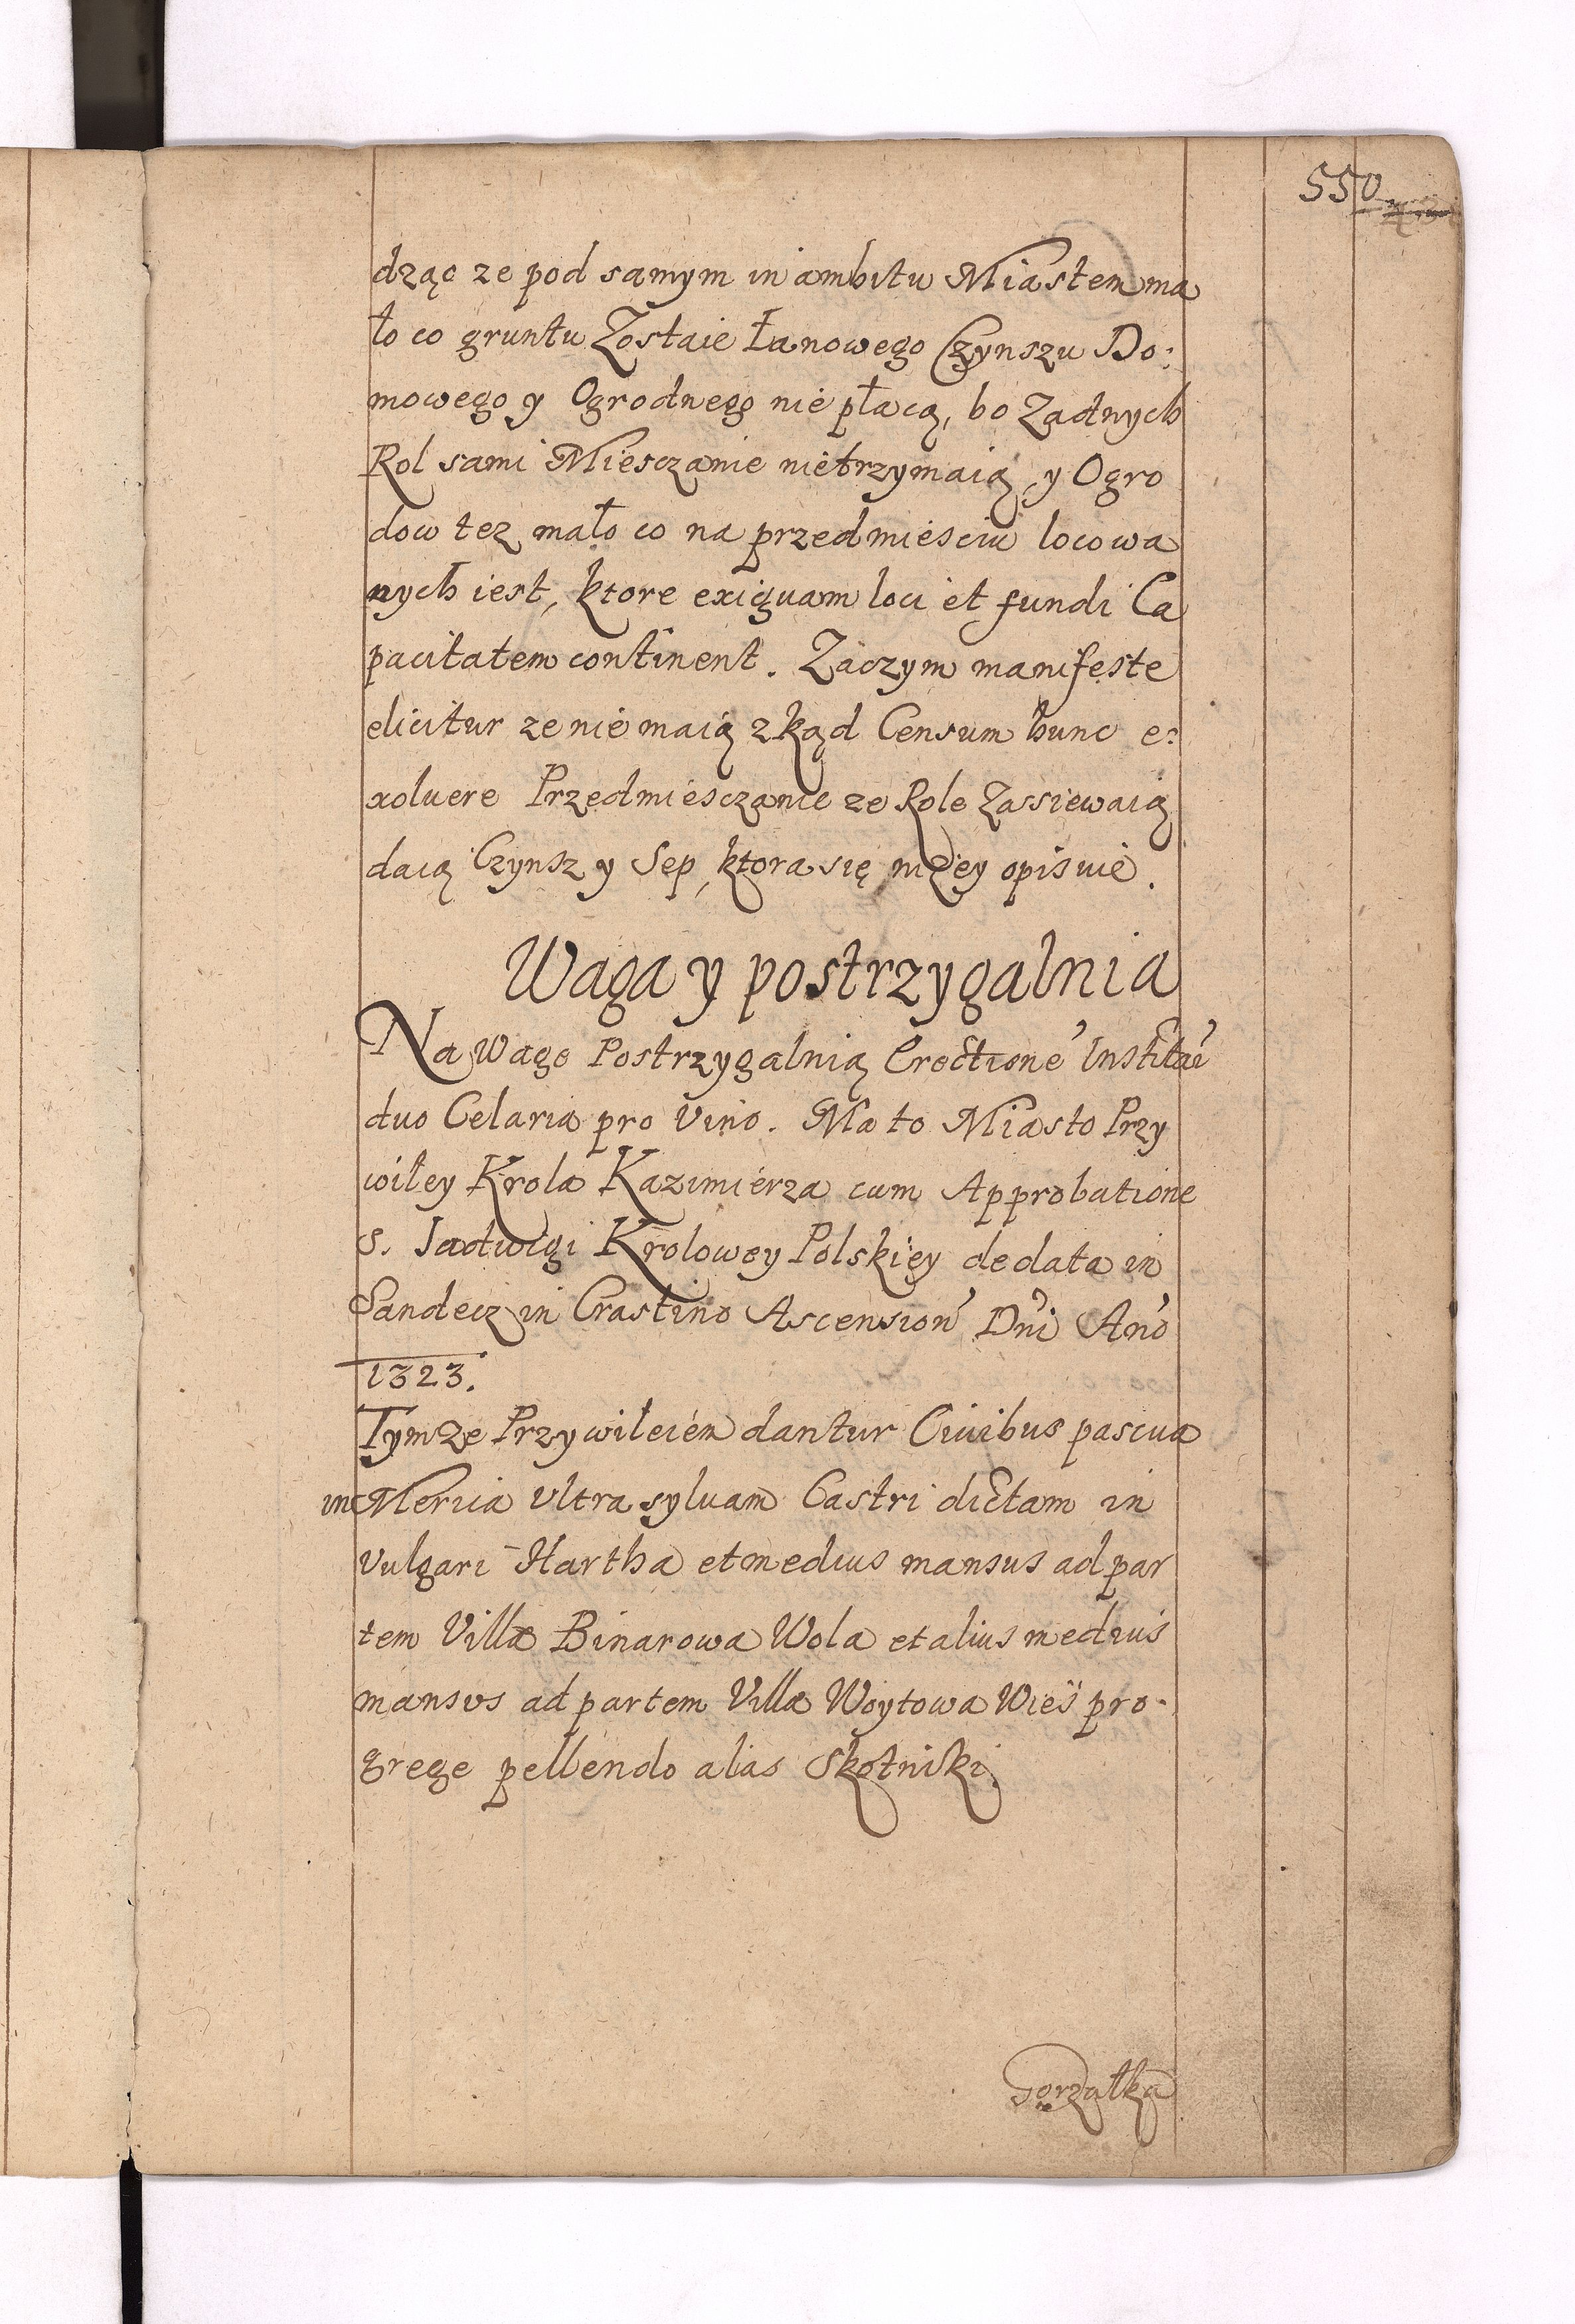 550
dząc ze pod samym in ambitu Miastem ma
ło co gruntu Zostaie Łanowego Czynszu Do:
mowego y Ogrodnego nie płacą, bo Zadnych
Rol sami Miesczanie nietrzymaią, y Ogro
dow tez mało co na przedmiesciu locowa
nych iest, ktore exiguam loci et fundi Ca
pacitatem continent. Zaczym manifeste
elicitur ze nie maią zkąd Censum hunc e:
xoluere Przedmiesczanie ze Role Zasiewaią
daią Czynsz y Sep, ktora się nizey opisuie.
Waga y postrzygalnia
Na Wagę Postrzygalnią Erectione' Institae'
duo Celaria pro Vino. Ma to Miasto Przy
wiley Krola Kazimierza cum Approbatione
S. Jadwigi Krolowey Polskiey de data in
Sandecz in Crastino Ascension' Dni' Ano'
1323.
Tymze Przywileiem dantur Ciuibus pascua
in Meruia Vltra syluam Castri dictam in
Vulgari Hartha et medius mansus ad par
tem Villæ Binarowa Wola et alius medius
mansus ad partem Villæ Woytowa Wieś pro
grege pellendo alias Skotniki.
Gorzałka